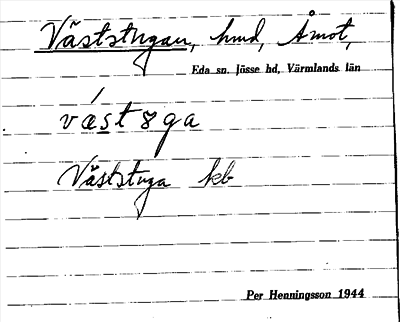 Väststugan, hmd, Åmot,
Eda sn. Jösse hd, Värmlands län
vǽstɞga
Väststuga kb
Per Henningsson 1944